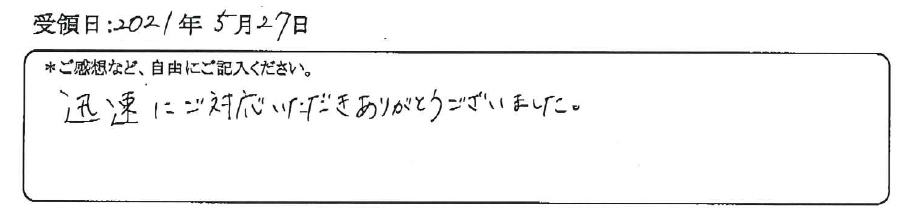 受領日:2021年5月27日
*ご感想など、自由にご記入ください。
迅速にご対応いただきありがとうございました。